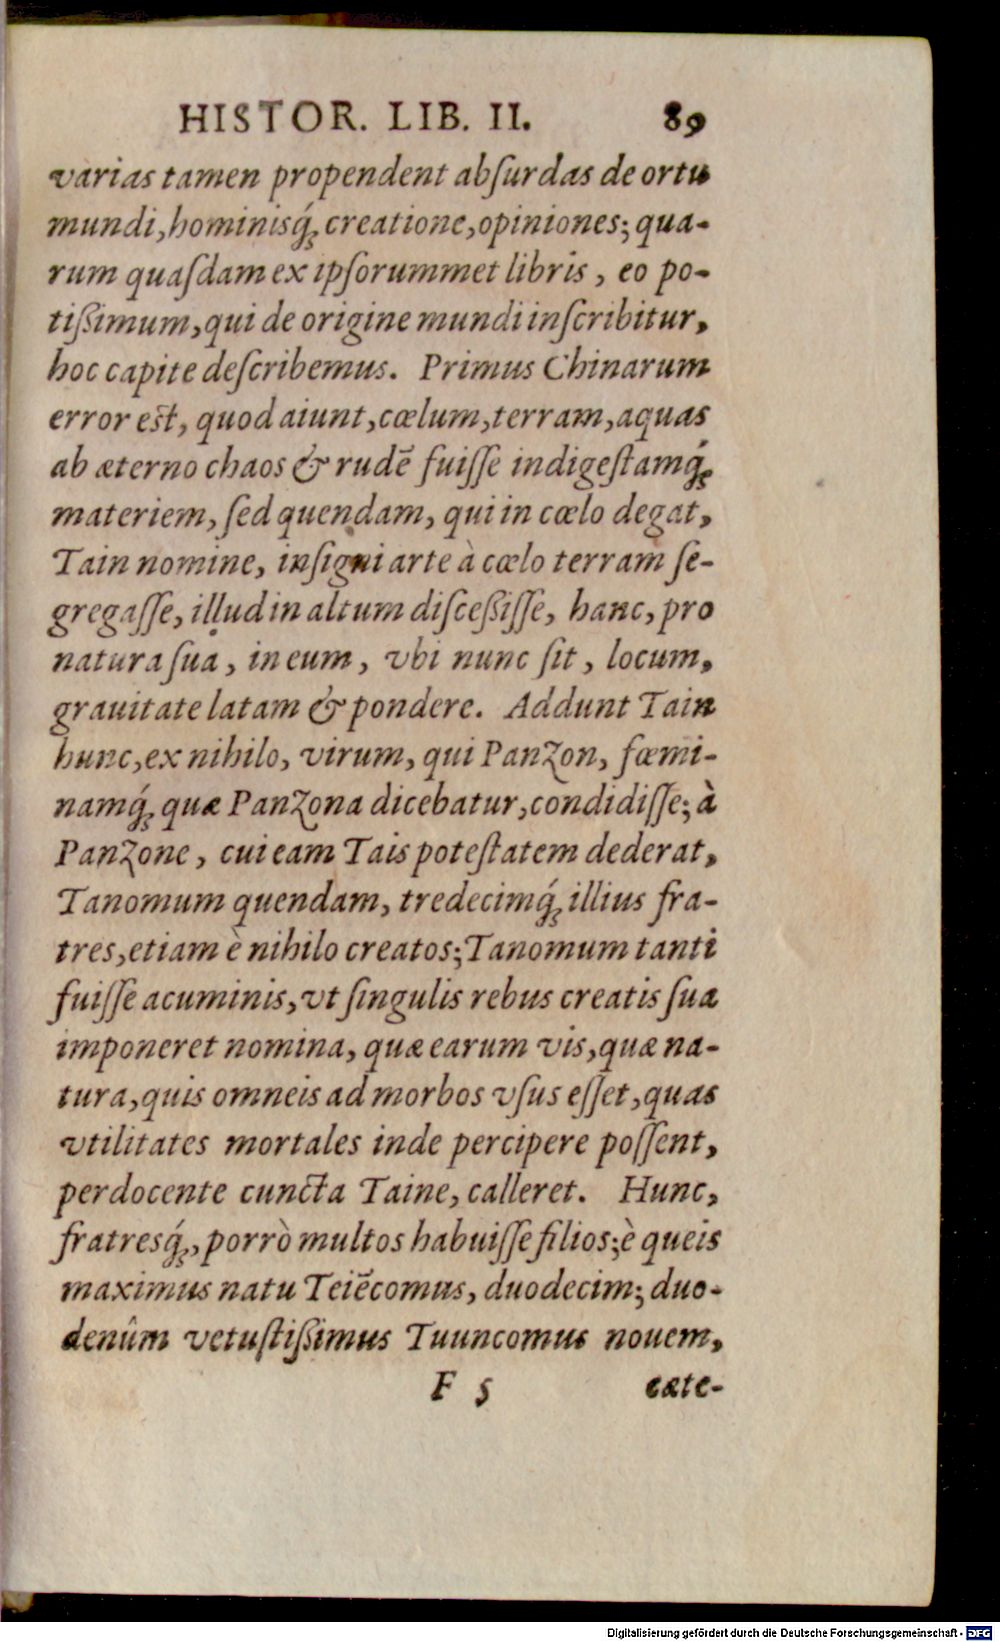 HISTOR. LIB. II. 89
varias tamen propendent abſurdas de ortu
mundi, hominisq́; creatione, opiniones; qua-
rum quaſdam ex ipſorummet libris, eo po-
tißimum, qui de origine mundi inſcribitur,
hoc capite deſcribemus. Primus Chinarum
error eſt, quod aiunt, cœlum, terram, aquas
ab æterno chaos & rudē fuiſſe indigeſtamq́;
materiem, ſed quendam, qui in cœlo degat,
Tain nomine, inſigni arte à cœlo terram ſe-
gregaſſe, illud in altum diſceßiſſe, hanc, pro
natura ſua, in eum, vbi nunc ſit, locum,
grauitate latam & pondere. Addunt Tain
hunc, ex nihilo, virum, qui PanZon, fœmi-
namq́; quæ PanZona dicebatur, condidiſſe; à
PanZone, cui eam Tais poteſtatem dederat,
Tanomum quendam, tredecimq́; illius fra-
tres, etiam è nihilo creatos; Tanomum tanti
fuiſſe acuminis, vt ſingulis rebus creatis ſua
imponeret nomina, quæ earum vis, quæ na-
tura, quis omneis ad morbos vſus eſſet, quas
vtilitates mortales inde percipere poſſent,
perdocente cuncta Taine, calleret. Hunc,
fratresq́;, porrò multos habuiſſe filios; è queis
maximus natu Teiēcomus, duodecim; duo-
denûm vetuſtißimus Tuuncomus nouem,
F 5 cæte-
Digitalisierung gefördert durch die Deutsche Forschungsgemeinschaft - DFG